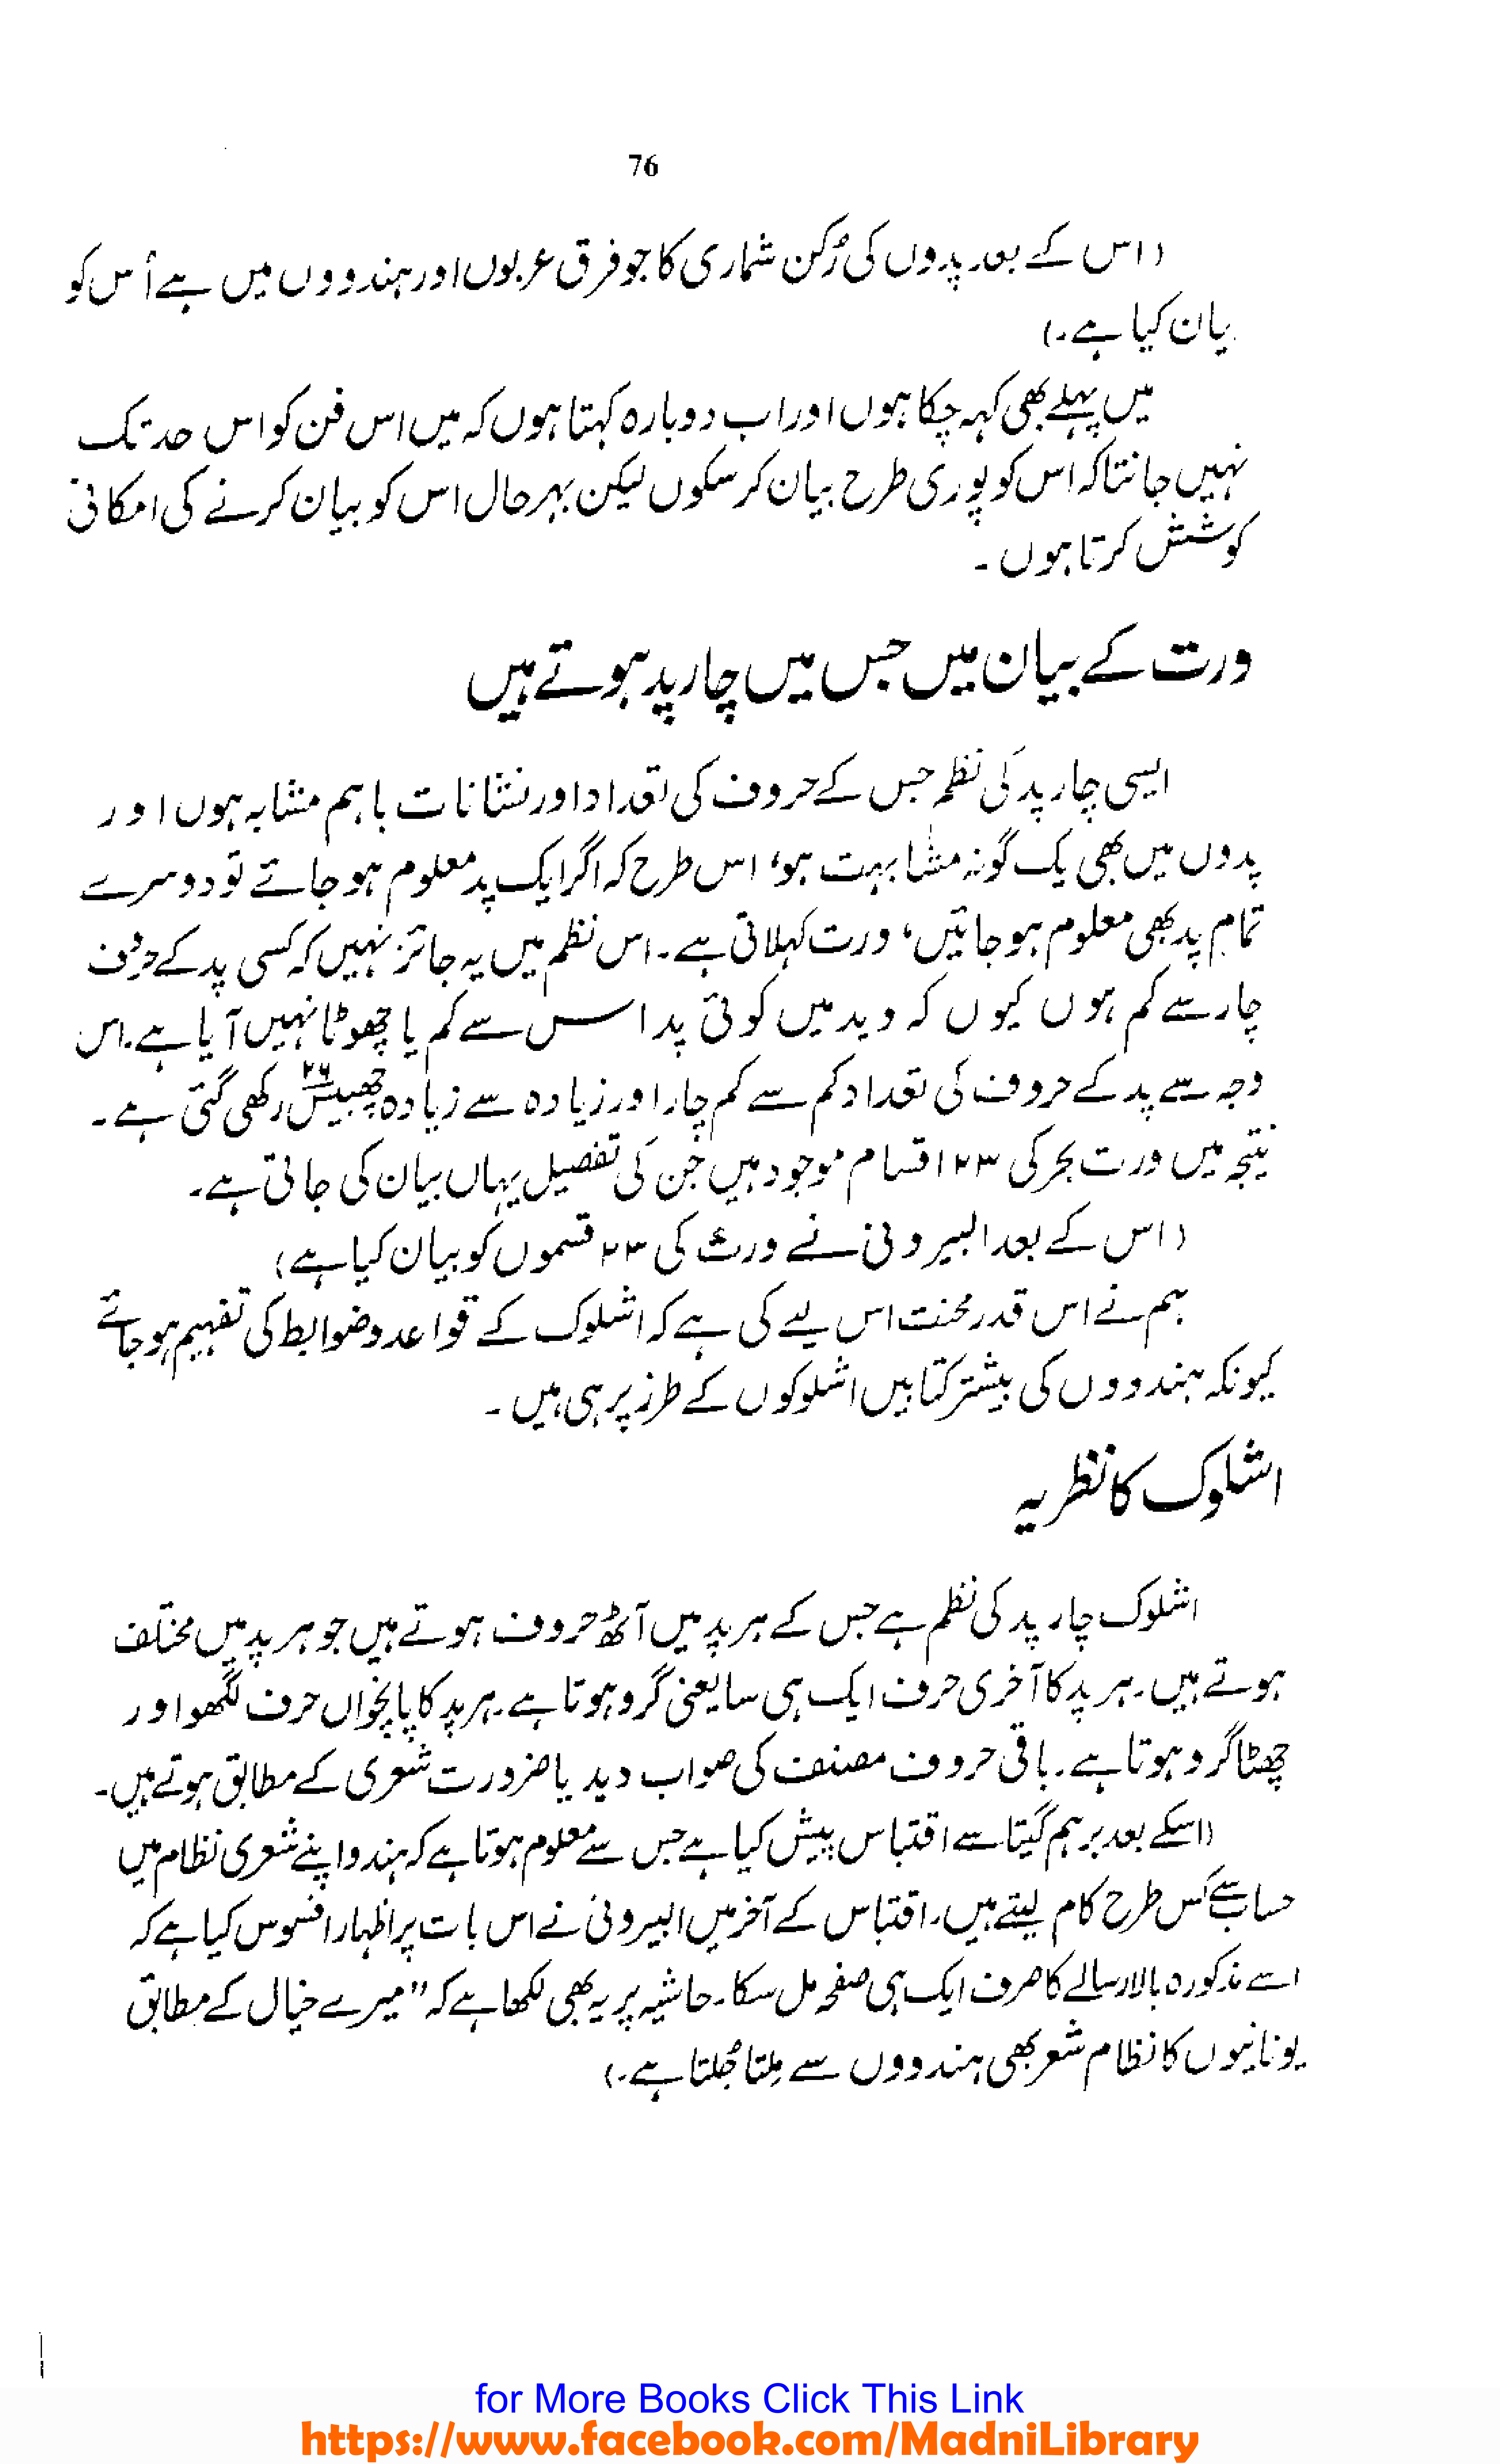 76
(اس کے بعد پدوں کی رُکن شماری کا جو فرق عربوں اور ہندووں میں ہے اُس کو
بیان کیا ہے۔)
میں پہلے بھی کہہ چکا ہوں اور اب دوبارہ کہتا ہوں کہ میں اس فن کو اس حد تک
نہیں جانتا کہ اس کو پوری طرح بیان کر سکوں لیکن بہر حال اس کو بیان کرنے کی امکانی
کوشش کرتا ہوں ۔
ورت کے بیان میں جس میں چار پد ہوتے ہیں
ایسی چار پد کی نظم جس کے حروف کی تعداد اور نشانات باہم مشابہ ہوں اور
پدوں میں بھی یک گونہ مشابہت ہو، اس طرح کہ اگر ایک پد معلوم ہو جائے تو دوسرے
تمام پد بھی معلوم ہو جائیں، ورت کہلاتی ہے۔ اس نظم میں یہ جائز نہیں کہ کسی پد کے حرف
چار سے کم ہوں کیوں کہ وید میں کوئی پد اس سے کم یا چھوٹا نہیں آیا ہے۔ اس
وجہ سے پد کے حروف کی تعداد کم سے کم چار اور زیادہ سے زیادہ چھبیس ۲۶ رکھی گئی ہے۔
نتیجہ میں ورت بحر کی ۲۳ اقسام موجود ہیں جن کی تفصیل یہاں بیان کی جاتی ہے۔
(اس کے بعد البیرونی نے ورت کی ۲۳ قسموں کو بیان کیا ہے)
ہم نے اس قدر محنت اس لیے کی ہے کہ اشلوک کے قواعد وضوابط کی تفہیم ہو جائے
کیونکہ ہندووں کی بیشتر کتابیں اشلوکوں کے طرز پر ہی ہیں ۔
اشلوک کا نظریہ
اشلوک چار پد کی نظم ہے جس کے ہر پد میں آٹھ حروف ہوتے ہیں جو ہر پد میں مختلف
ہوتے ہیں۔ ہر پد کا آخری حرف ایک ہی سا یعنی گرو ہوتا ہے۔ ہر پد کا پانچواں حرف لگھو اور
چھٹا گرو ہوتا ہے۔ باقی حروف مصنف کی صواب دید یا ضرورت شعری کے مطابق ہوتے ہیں۔
(اسکے بعد برہم گپتا سے اقتباس پیش کیا ہے جس سے معلوم ہوتا ہے کہ ہندو اپنے شعری نظام میں
حساب سے کس طرح کام لیتے ہیں۔ اقتباس کے آخر میں البیرونی نے اس بات پر اظہار افسوس کیا ہے کہ
اسے مذکورہ بالا رسالے کا صرف ایک ہی صفحہ مل سکا۔ حاشیہ پر یہ بھی لکھا ہے کہ "میرے خیال کے مطابق
یونانیوں کا نظام شعر بھی ہندووں سے ملتا جُلتا ہے۔)
for More Books Click This Link
https://www.facebook.com/MadniLibrary